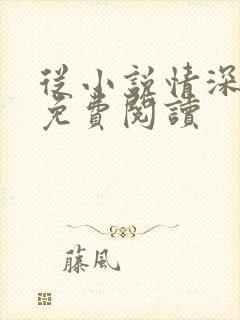 從小說情深
免費閱讀
藤風